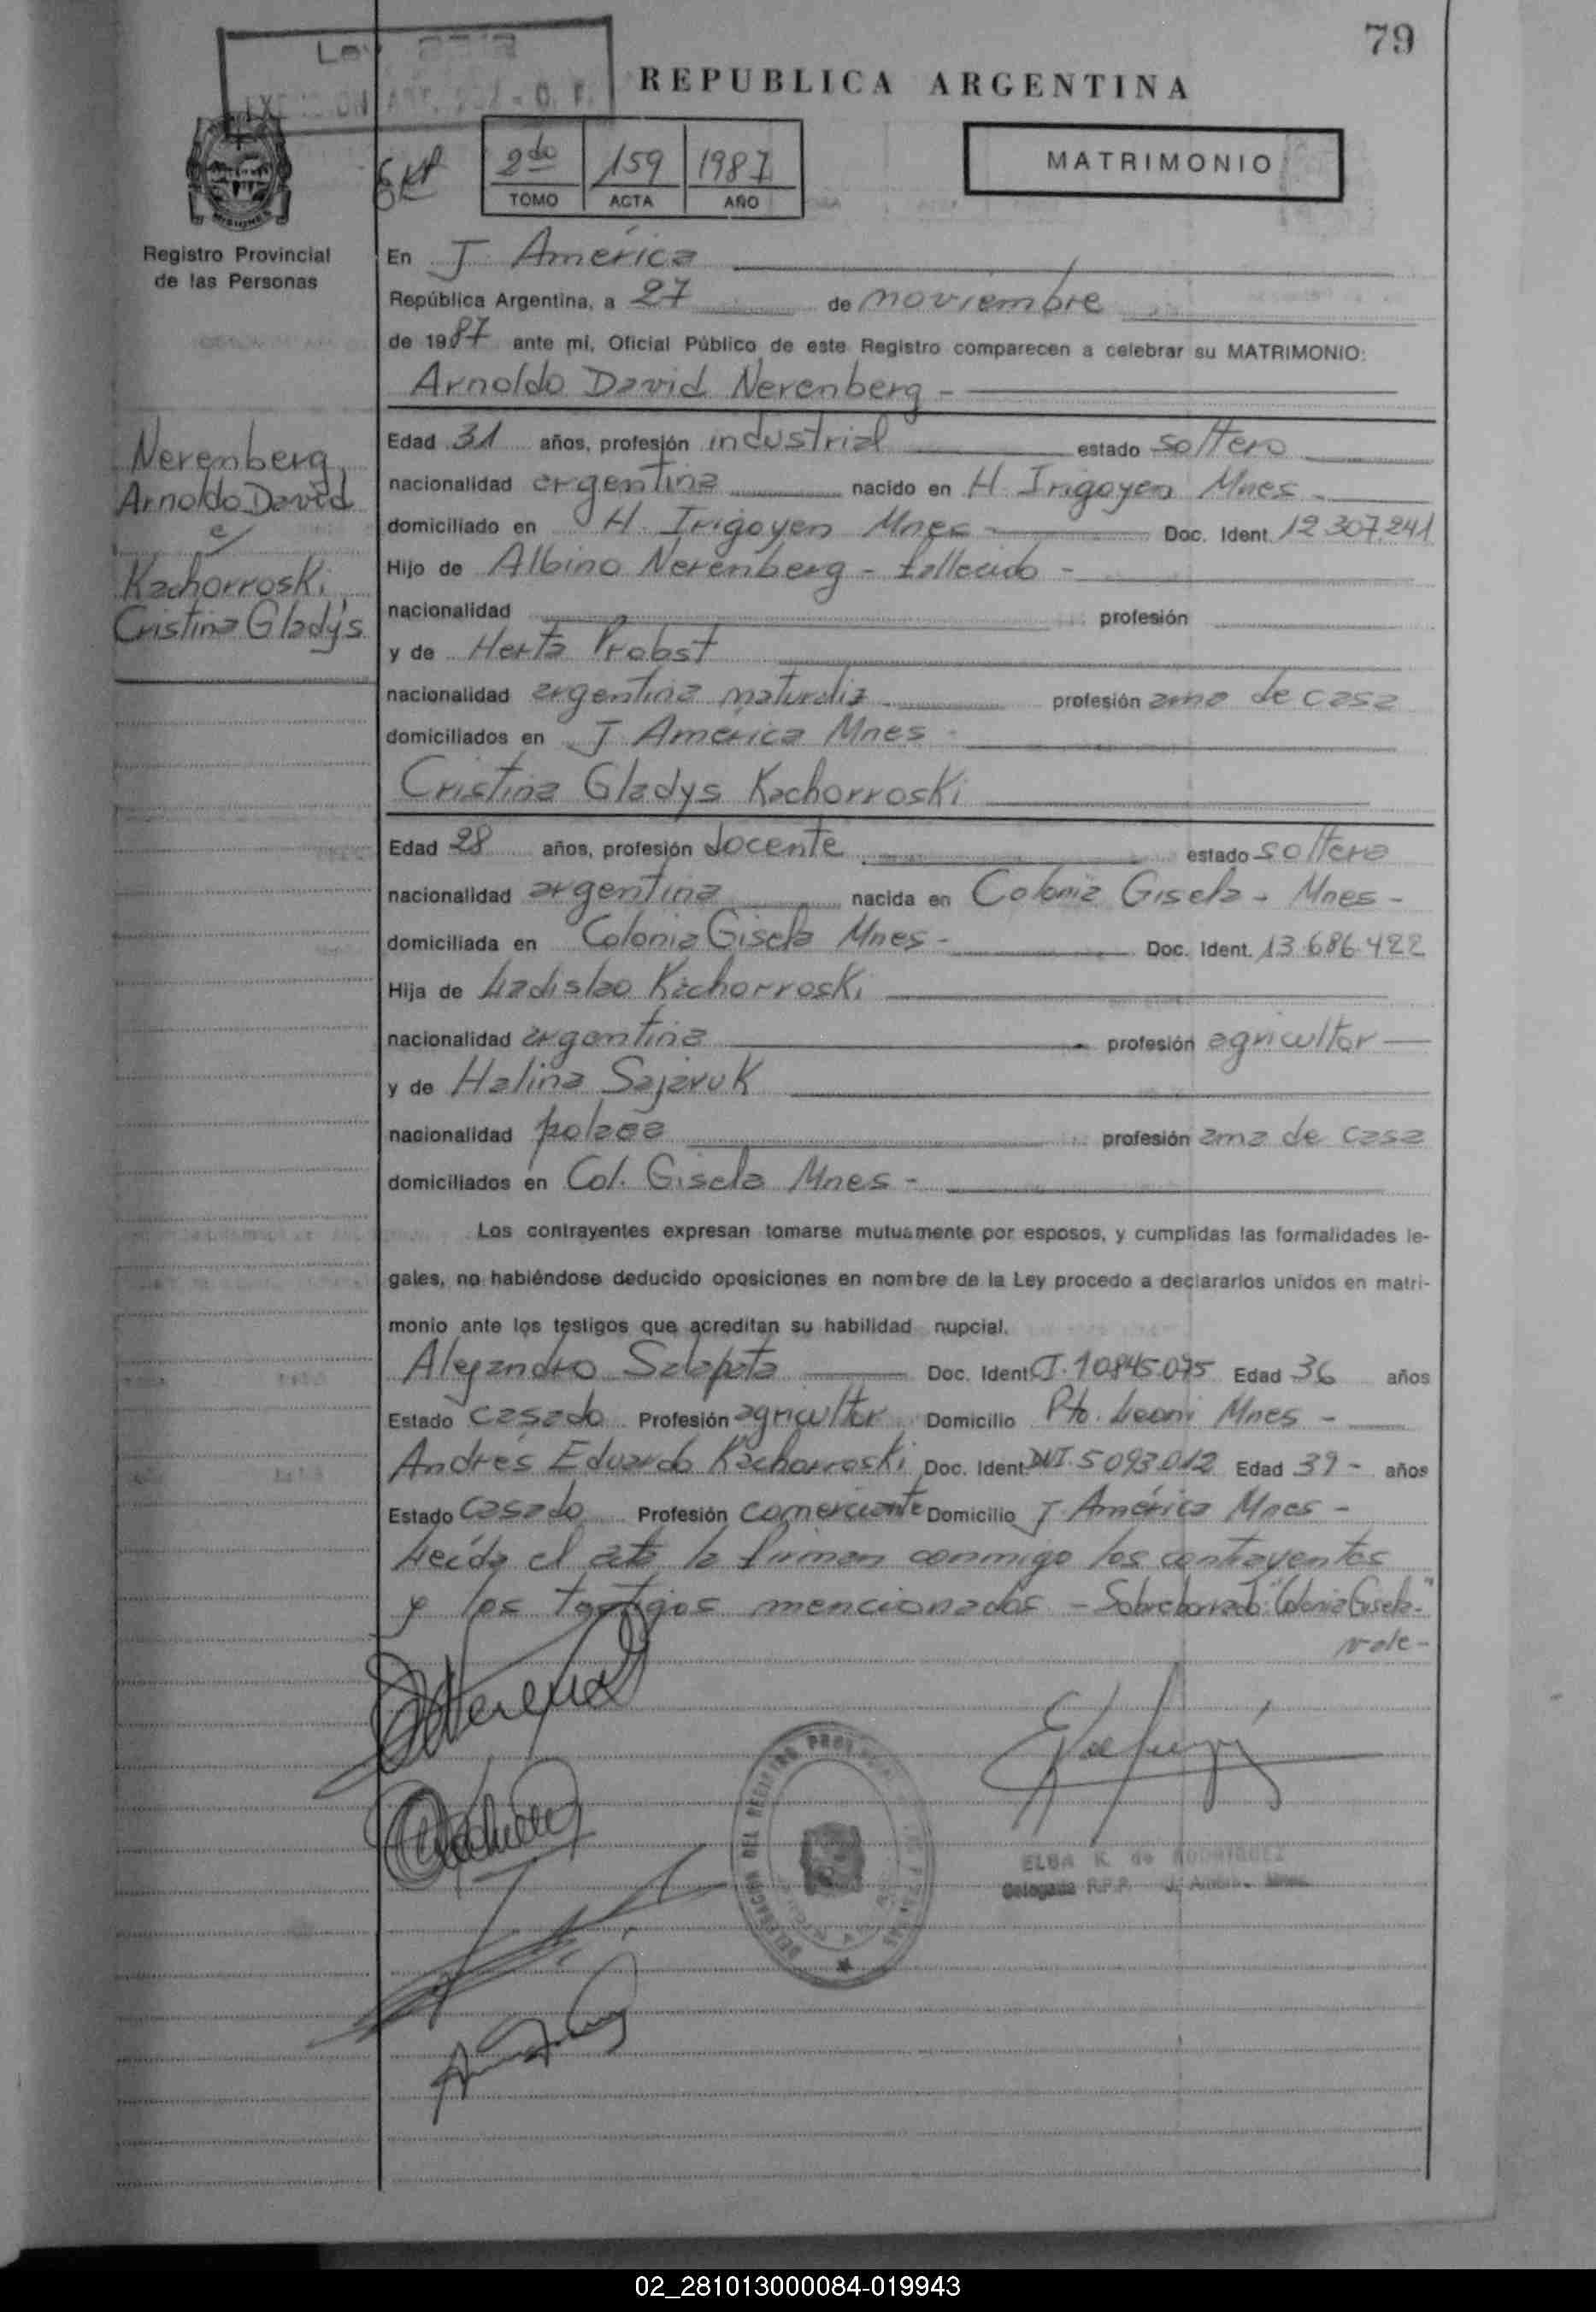 79
Ley
REPUBLICA ARGENTINA
MATRIMONIO
2do 159 1987
TOMO ACTA AÑO
MISIONES
Registro Provincial
de las Personas
En J. América
República Argentina, a 27 de noviembre
de 1987 ante mi, Oficial Público de este Registro comparecen a celebrar su MATRIMONIO:
Arnoldo David Nerenberg -
Nerenberg,
Arnoldo David
c/
Kachorroski,
Cristina Gladys
Edad 31 años, profesión industrial estado soltero
nacionalidad argentina nacido en H. Irigoyen Mnes -
domiciliado en H. Irigoyen Mnes - Doc. Ident. 12.307.241
Hijo de Albino Nerenberg - fallecido -
nacionalidad profesión
y de Herta Probst
nacionalidad argentina naturaliz. profesión ama de casa
domiciliados en J. América Mnes -
Cristina Gladys Kachorroski
Edad 28 años, profesión docente estado soltera
nacionalidad argentina nacida en Colonia Gisela - Mnes -
domiciliada en Colonia Gisela Mnes - Doc. Ident. 13.686.422
Hija de Ladislao Kachorroski
nacionalidad argentina profesión agricultor
y de Halina Sajaruk
nacionalidad polaca profesión ama de casa
domiciliados en Col. Gisela Mnes -
Los contrayentes expresan tomarse mutuamente por esposos, y cumplidas las formalidades le-
gales, no habiéndose deducido oposiciones en nombre de la Ley procedo a declararlos unidos en matri-
monio ante los testigos que acreditan su habilidad nupcial.
Alejandro Salapata Doc. Ident. CI. 10845.075 Edad 36 años
Estado casado Profesión agricultor Domicilio Pto. Leoni Mnes -
Andrés Eduardo Kachorroski Doc. Ident. DNI. 5093.012 Edad 39 - años
Estado casado Profesión comerciante Domicilio J. América Mnes -
Leída el acta la firman conmigo los contrayentes
y los testigos mencionados - Sobreborrado: "Colonia Gisela-"
vale -
DELEGACION DEL REGISTRO
ELBA K. de RODRIGUEZ
Delegada R.P.P. J. Amér. Mnes.
02_281013000084-019943